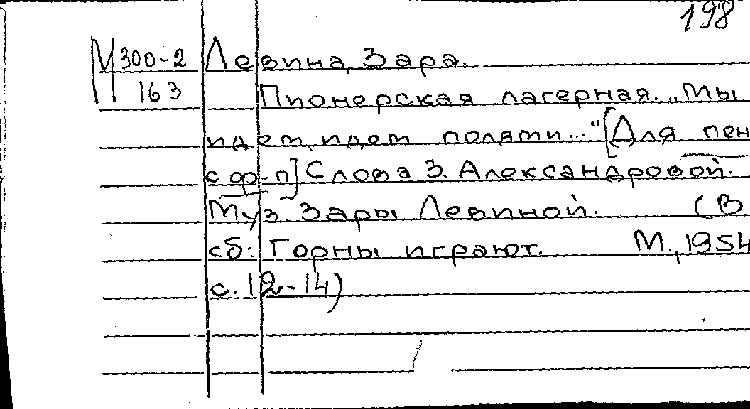 198
М 300-2 Левина, Зара.
163 Пионерская лагерная. „Мы
идем, идем полями..." [Для пен
с ф-п] Слова З. Александровой.
Муз. Зары Левиной. (В
сб: Горны играют. М., 1954
с. 12-14)